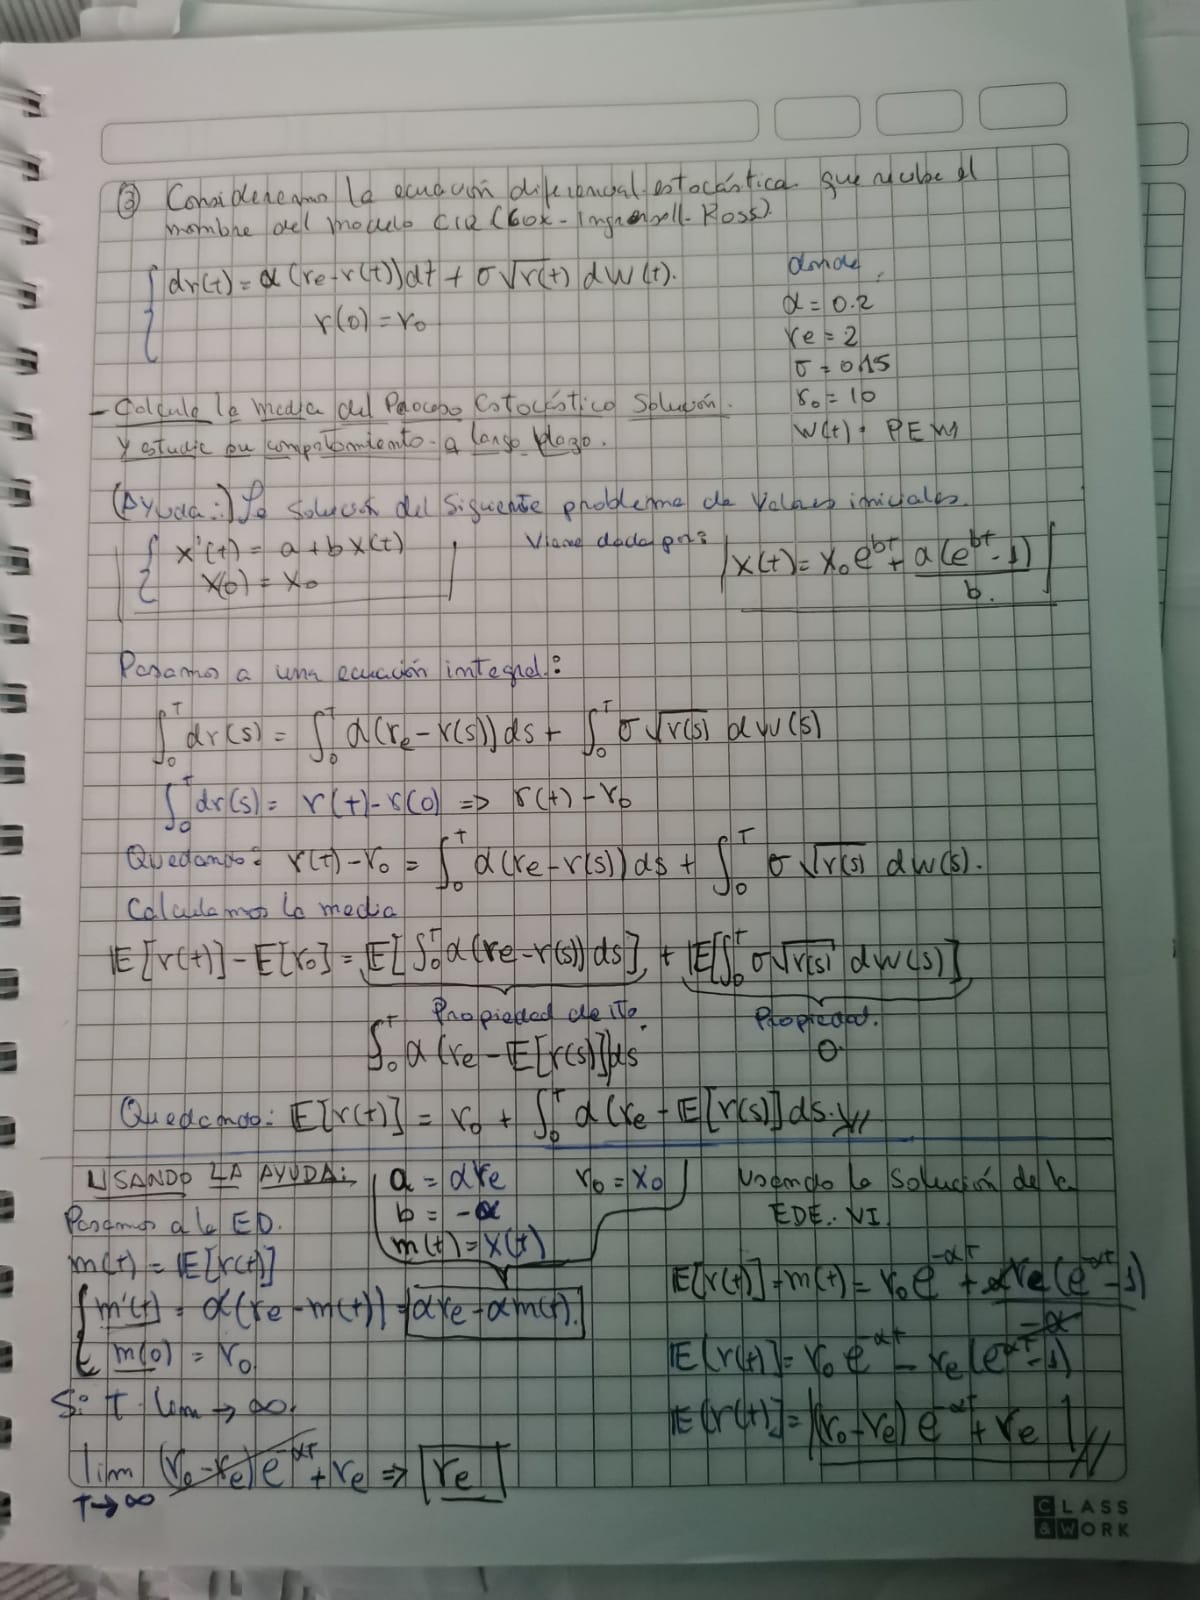 ③ Consideremos la ecuación diferencial estocástica que recibe el
nombre del modelo CIR (Cox-Ingersoll-Ross).
dr(t) = α(re-r(t))dt + σ√r(t) dW(t).
r(0) = r₀
donde
α = 0.2
re = 2
σ = 0.15
r₀ = 10
W(t): PEW
- Calcule la media del Proceso Estocástico Solución.
y estudie su comportamiento a largo plazo.
(Ayuda:) La solución del siguiente problema de Valores iniciales.
x'(t) = a + b x(t)
x(0) = x₀
Viene dada por:
x(t) = x₀ e^{bt} + a(e^{bt} - 1) / b.
Pasamos a una ecuación integral:
∫₀ᵀ dr(s) = ∫₀ᵀ α(re - r(s)) ds + ∫₀ᵀ σ√r(s) dW(s)
∫₀ᵀ dr(s) = r(t) - r(0) => r(t) - r₀
Quedando: r(t) - r₀ = ∫₀ᵀ α(re - r(s)) ds + ∫₀ᵀ σ√r(s) dW(s).
Calculamos la media
E[r(t)] - E[r₀] = E[∫₀ᵀ α(re - r(s)) ds] + E[∫₀ᵀ σ√r(s) dW(s)]
Propiedad de ito.
∫₀ᵀ α(re - E[r(s)]ds
Propiedad.
0.
Quedando: E[r(t)] = r₀ + ∫₀ᵀ α(re - E[r(s)] ds.
USANDO LA AYUDA:
Pasamos a la ED.
m(t) = E[r(t)]
m'(t) = α(re - m(t)) = αre - αm(t).
m(0) = r₀
a = αre
r₀ = x₀
b = -α
m(t) = x(t)
Usando la Solución de la
EDE. VI
E[r(t)] = m(t) = r₀ e^{-αT} + αre(e^{-αT} - 1) / -α
E[r(t)] = r₀ e^{-αT} - re(e^{-αT} - 1)
E[r(t)] = (r₀ - re) e^{-αT} + re
Si T lim → ∞.
lim T→∞ (r₀ - re) e^{-αT} + re => re
CLASS
&WORK